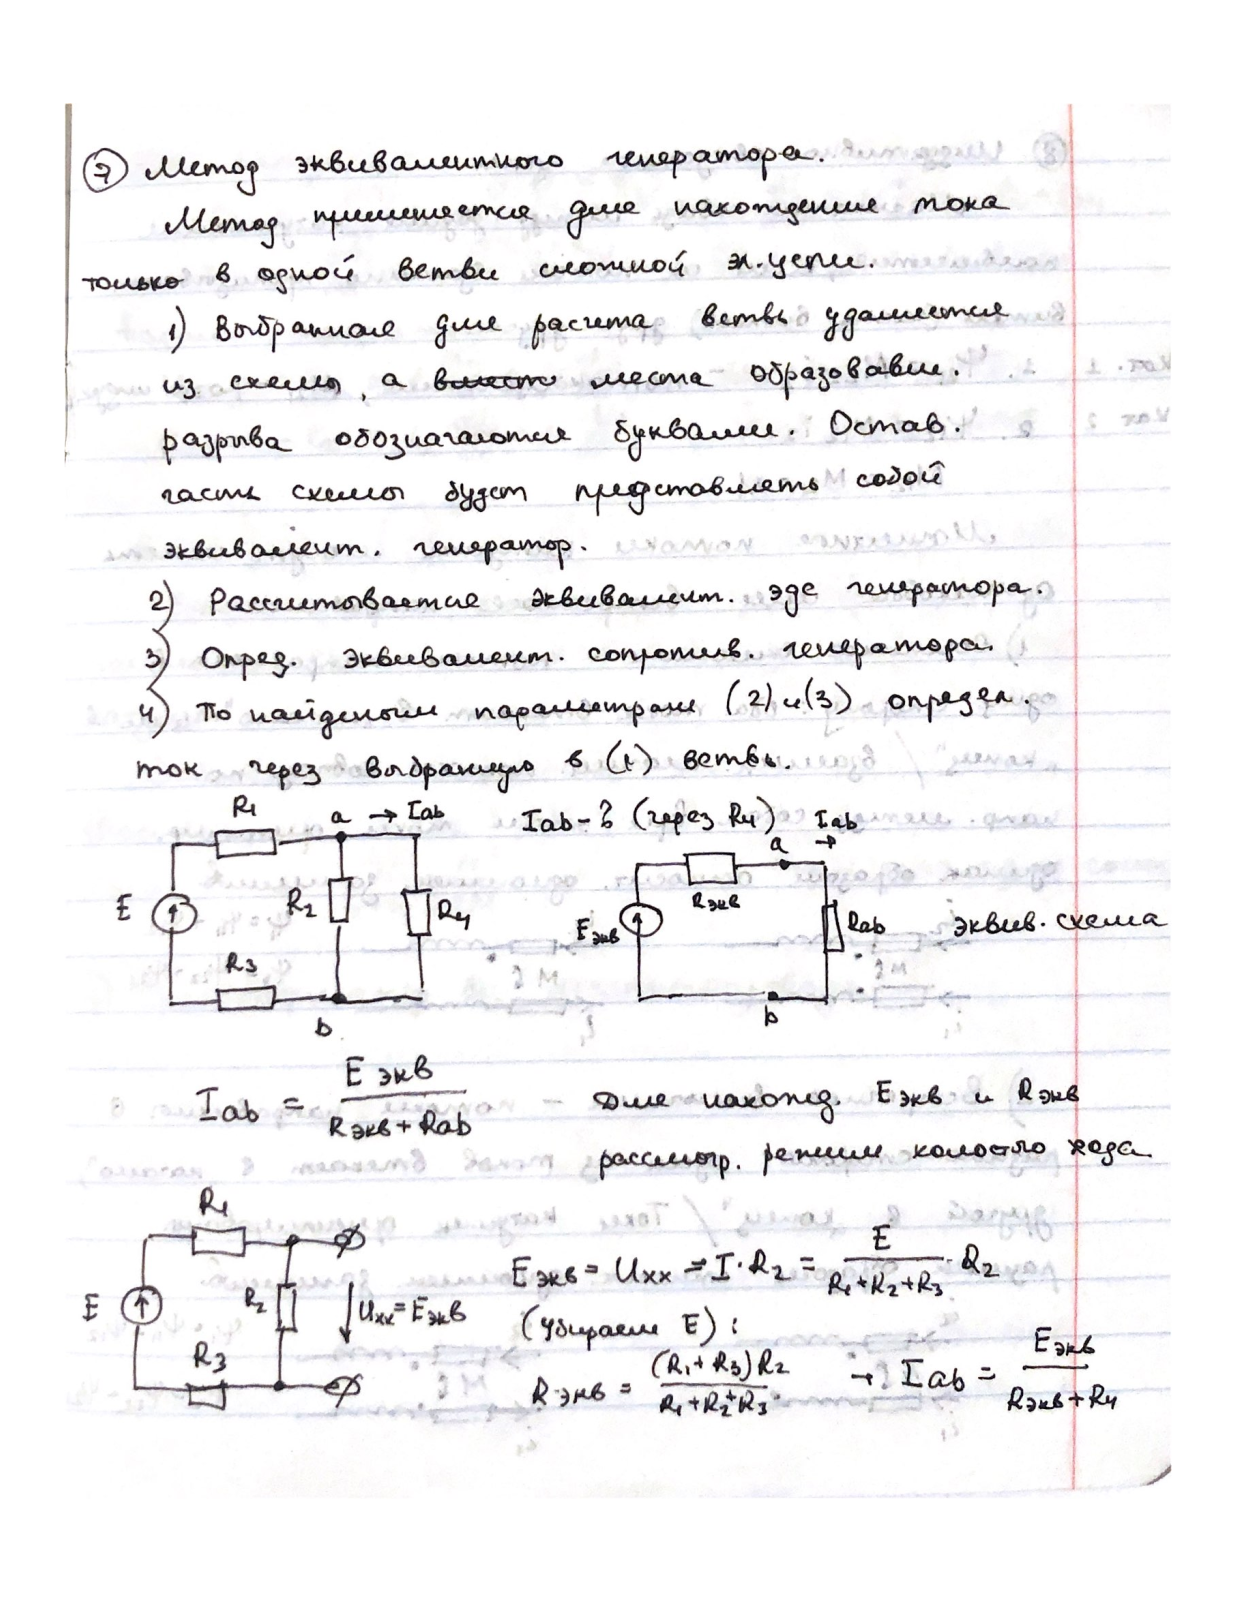 7 Метод эквивалентного генератора.
Метод применяется для нахождения тока
только в одной ветви сложной эл.цепи.
1) Выбранная для расчета ветвь удаляется
из схемы, а места образовавш.
разрыва обозначаются буквами. Остав.
часть схемы будет представлять собой
эквивалент. генератор.
2) Рассчитывается эквивалент. эдс генератора.
3) Опред. эквивалент. сопротив. генератора.
4) По найденым параметрам (2) и (3) определ.
ток через выбранную в (1) ветвь.
R1 a → Iab Iab - ? (через R4) Iab →
a
E R2 R4 Rэкв Eэкв Rab эквив. схема
R3
b b
Iab = Eэкв / (Rэкв + Rab) Для нахожд. Eэкв и Rэкв
рассмотр. режим холостого хода
R1
E R2 Uхх = Eэкв Eэкв = Uхх = I · R2 = E / (R1 + R2 + R3) · R2
(Убираем E):
R3 Rэкв = (R1 + R3) R2 / (R1 + R2 + R3) → Iab = Eэкв / (Rэкв + R4)